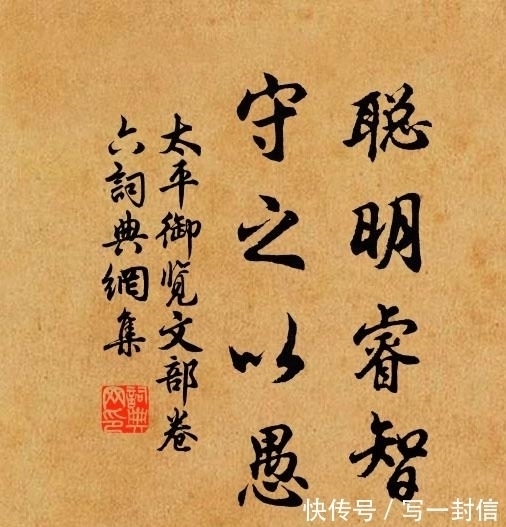 聪明睿智
守之以愚
太平御览文部卷
六词典網集
詞典
网印
快传号/写一封信